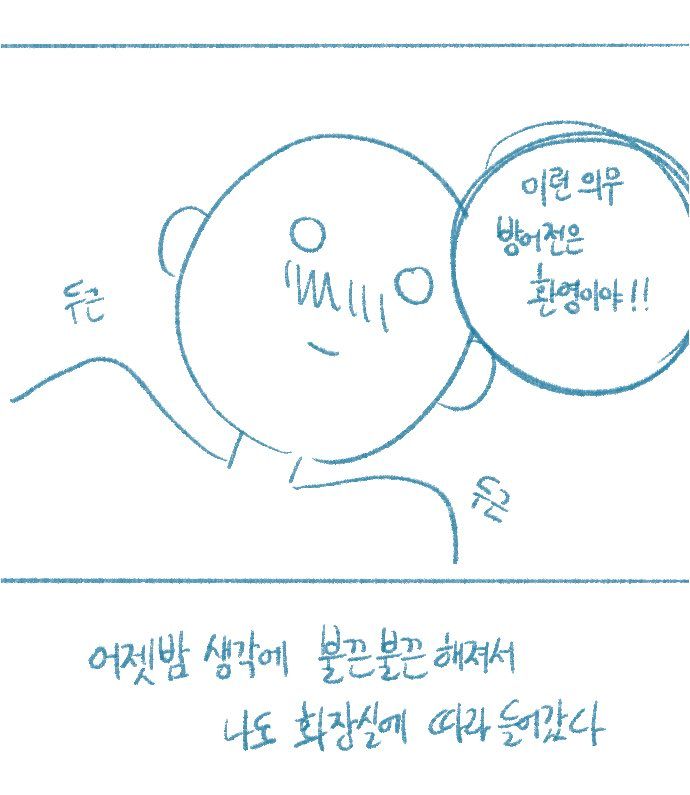 이런 의무
방어전은
환영이야!!
두근
두근
어젯밤 생각에 불끈불끈해져서
나도 화장실에 따라 들어갔다